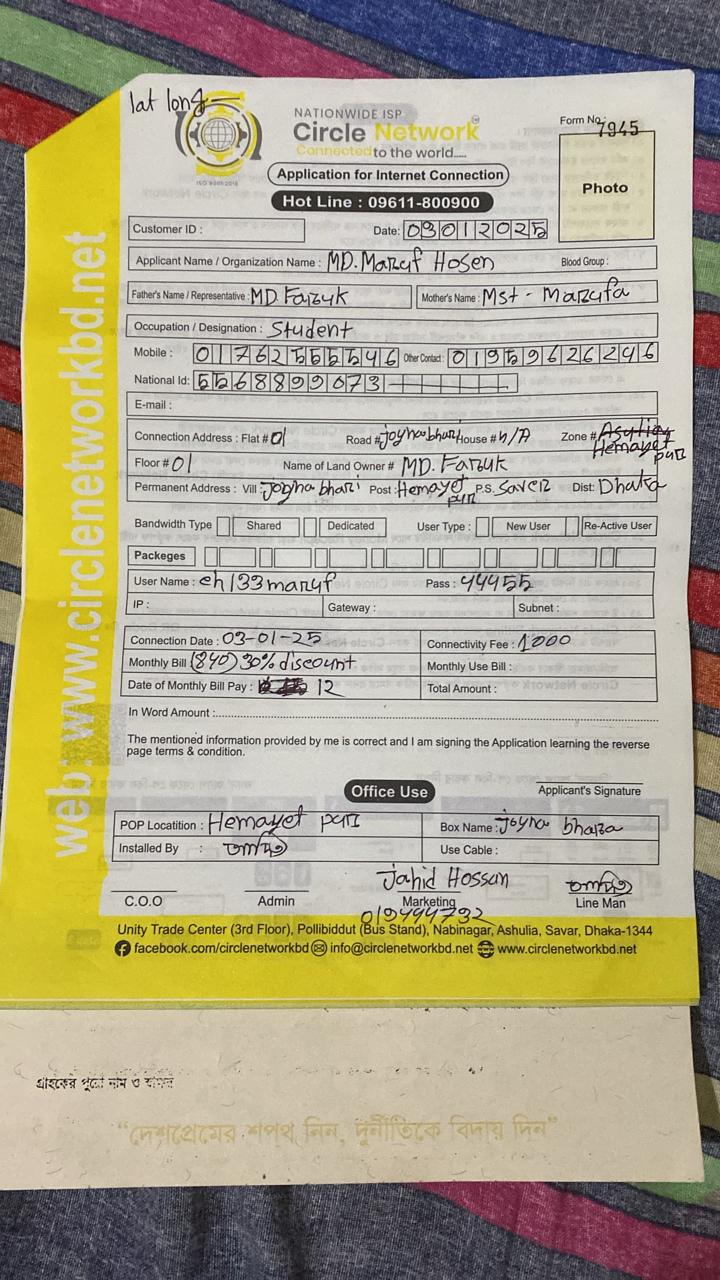 lat long
NATIONWIDE ISP
Circle Network
Connected to the world.....
ISO 9001:2015
Form No: 7945
Application for Internet Connection
Photo
Hot Line : 09611-800900
Customer ID :
Date: 03012025
Applicant Name / Organization Name : MD. Maruf Hosen Blood Group :
Father's Name / Representative : MD Faruk Mother's Name : Mst - Marufa
Occupation / Designation : Student
Mobile : 01762555546 Other Contact : 01959626246
National Id: 5568899073
E-mail :
Connection Address : Flat # 01 Road # joynabhari House # N/A Zone # Hemayet pur
Floor # 01 Name of Land Owner # MD. Faruk
Permanent Address : Vill : Joyna bhari Post : Hemayet pur P.S. Saver Dist: Dhaka
Bandwidth Type Shared Dedicated User Type : New User Re-Active User
Packeges
User Name : ch133maruf Pass : 44455
IP : Gateway : Subnet :
Connection Date : 03-01-25 Connectivity Fee : 1000
Monthly Bill (840) 30% discount Monthly Use Bill :
Date of Monthly Bill Pay : 12 Total Amount :
In Word Amount :
The mentioned information provided by me is correct and I am signing the Application learning the reverse
page terms & condition.
Applicant's Signature
Office Use
POP Locatition : Hemayet pur Box Name : Joyna bhara
Installed By : Use Cable :
Jahid Hossan
C.O.O Admin Marketing Line Man
019494732
Unity Trade Center (3rd Floor), Pollibiddut (Bus Stand), Nabinagar, Ashulia, Savar, Dhaka-1344
facebook.com/circlenetworkbd info@circlenetworkbd.net www.circlenetworkbd.net
web : www.circlenetworkbd.net
গ্রাহকের পুরো নাম ও
“দেশপ্রেমের শপথ নিন, দুর্নীতিকে বিদায় দিন”